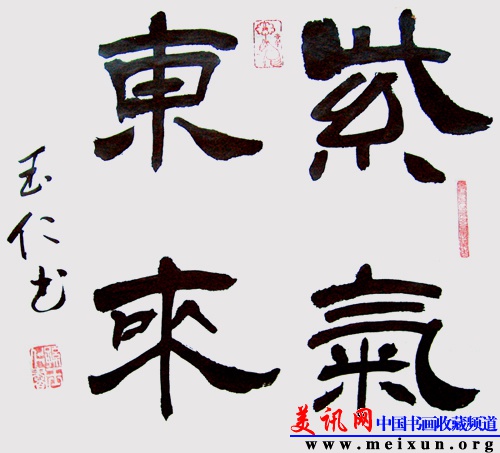 紫氣
東來
玉仁书
美讯网 中国书画收藏频道
www.meixun.org